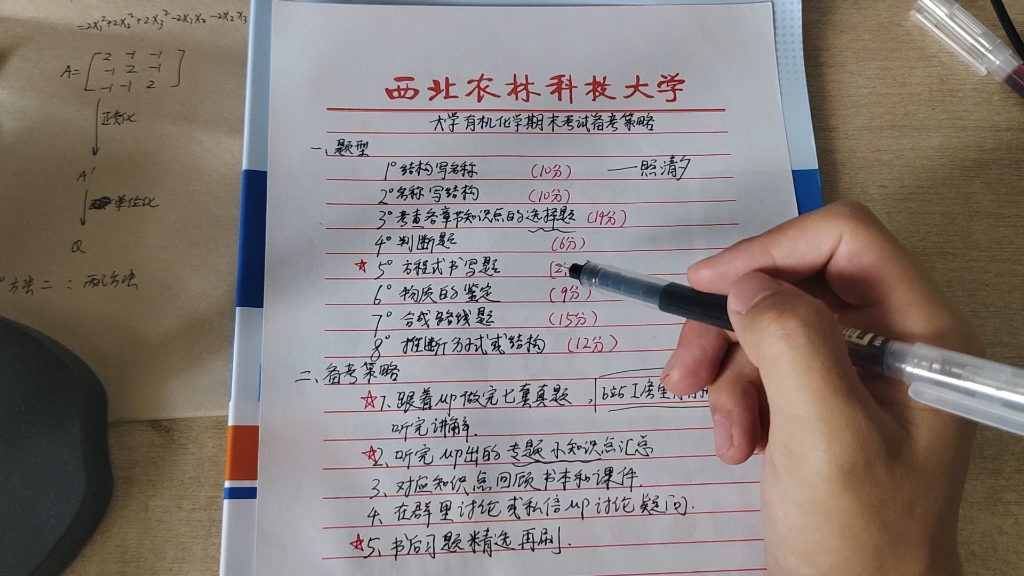 =2x₁²+2x₂²+2x₃²-2x₁x₂-2x₂x₃
A=[2 -1 -1
-1 2 -1
-1 -1 2]
正交化
A'
单位化
Q
方法二：配方法
西北农林科技大学
大学有机化学期末考试备考策略
一、题型
1°结构写名称 (10分) ——照清夕
2°名称写结构 (10分)
3°考查各章书知识点的选择题 (19分)
4°判断题 (6分)
☆5°方程式书写题
6°物质的鉴定 (9分)
7°合成路线题 (15分)
8°推断分子式或结构 (12分)
二、备考策略
☆1、跟着up做完七套真题，
听完讲解.
☆2、听完up出的专题小知识点汇总
3、对应知识点回顾书本和课件.
4、在群里讨论或私信up讨论疑问.
☆5、书后习题精选再刷.